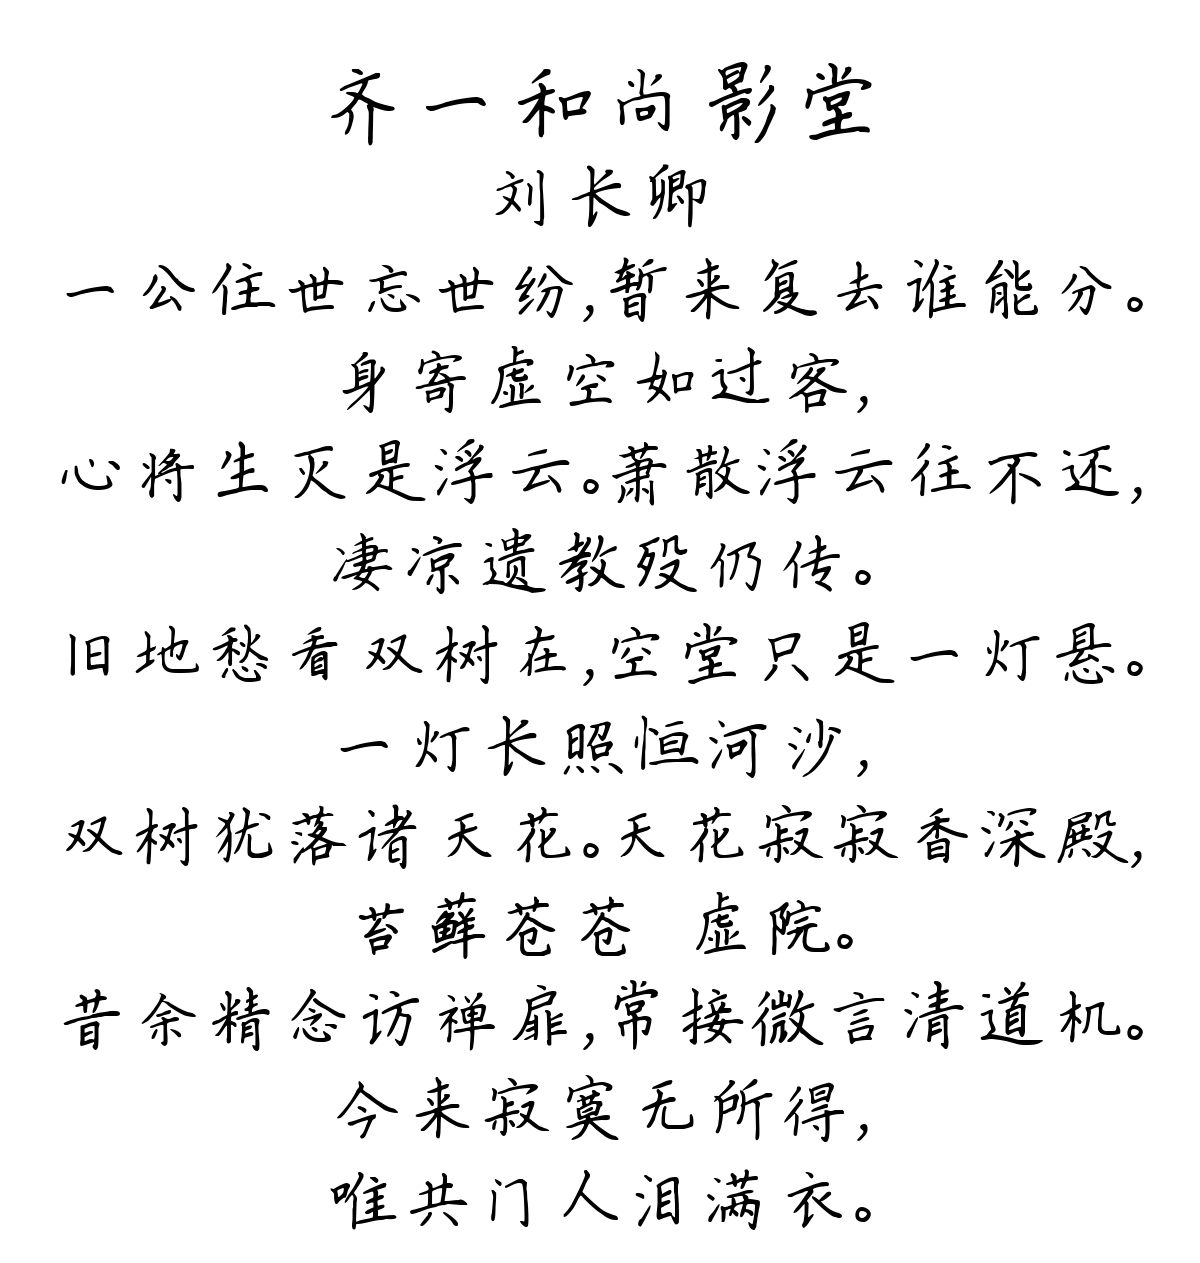 齐一和尚影堂
刘长卿
一公住世忘世纷,暂来复去谁能分。
身寄虚空如过客,
心将生灭是浮云。萧散浮云往不还,
凄凉遗教殁仍传。
旧地愁看双树在,空堂只是一灯悬。
一灯长照恒河沙,
双树犹落诸天花。天花寂寂香深殿,
苔藓苍苍 虚院。
昔余精念访禅扉,常接微言清道机。
今来寂寞无所得,
唯共门人泪满衣。